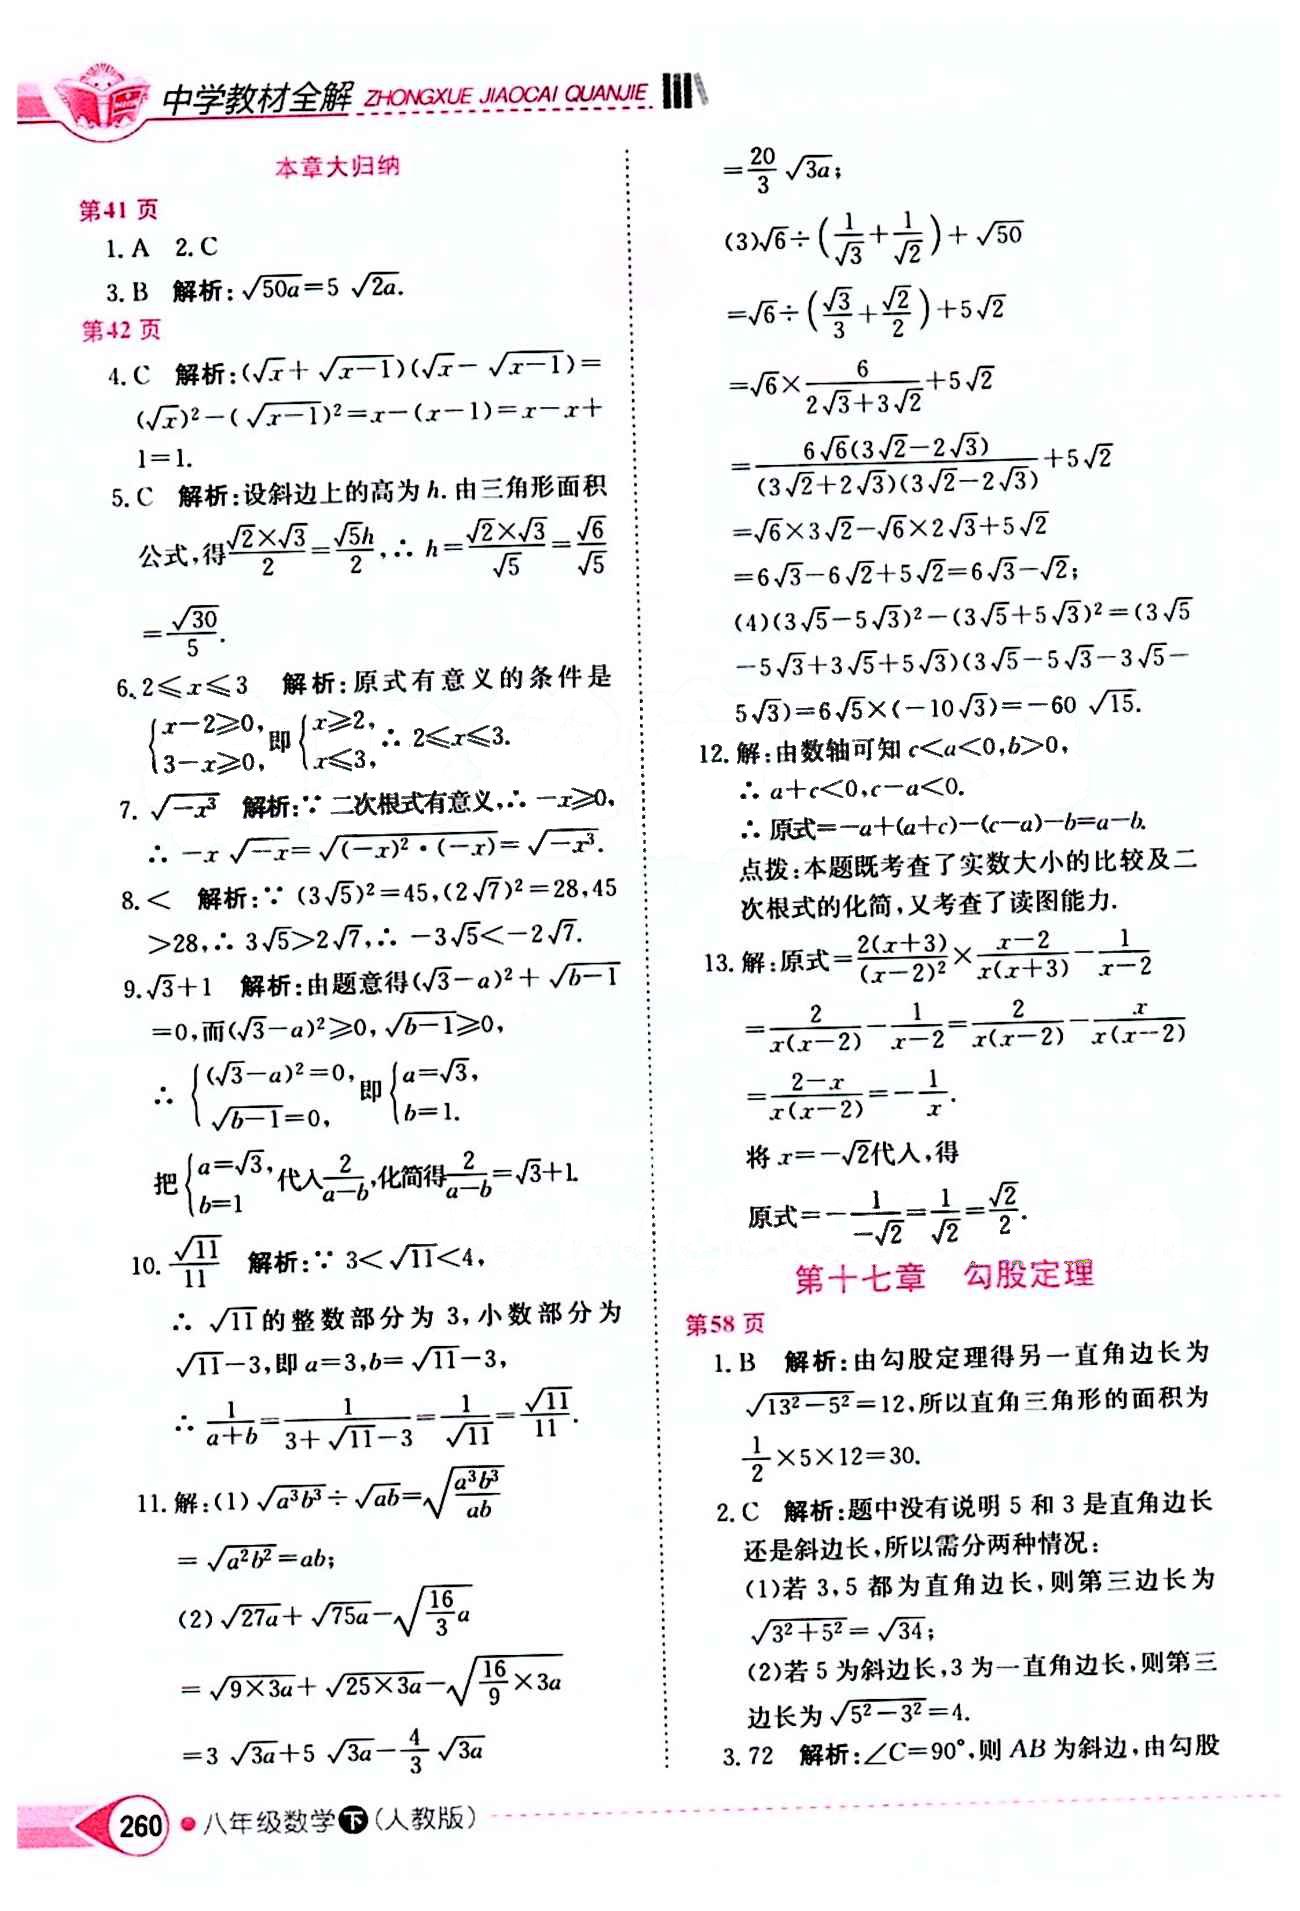 中学教材全解 ZHONGXUE JIAOCAI QUANJIE
本章大归纳
第41页
1. A 2. C
3. B 解析:√(50a)=5√(2a).
第42页
4. C 解析:(√x+√(x-1))(√x-√(x-1))=
(√x)²-(√(x-1))²=x-(x-1)=x-x+
1=1.
5. C 解析:设斜边上的高为 h. 由三角形面积
公式,得(√2×√3)/2=(√5h)/2,∴ h=(√2×√3)/√5=√6/√5
=√30/5.
6. 2≤x≤3 解析:原式有意义的条件是
{x-2≥0, 3-x≥0, 即{x≥2, x≤3, ∴ 2≤x≤3.
7. √(-x³) 解析:∵ 二次根式有意义,∴ -x≥0,
∴ -x√(-x)=√((-x)²·(-x))=√(-x³).
8. < 解析:∵ (3√5)²=45,(2√7)²=28,45
>28,∴ 3√5>2√7,∴ -3√5<-2√7.
9. √3+1 解析:由题意得(√3-a)²+√(b-1)
=0,而(√3-a)²≥0,√(b-1)≥0,
∴ {(√3-a)²=0, √(b-1)=0, 即{a=√3, b=1.
把{a=√3, b=1 代入2/(a-b),化简得2/(a-b)=√3+1.
10. √11/11 解析:∵ 3<√11<4,
∴ √11的整数部分为 3,小数部分为
√11-3,即 a=3,b=√11-3,
∴ 1/(a+b)=1/(3+√11-3)=1/√11=√11/11.
11. 解:(1)√(a³b³)÷√(ab)=√(a³b³/ab)
=√(a²b²)=ab;
(2)√(27a)+√(75a)-√(16/3 a)
=√(9×3a)+√(25×3a)-√(16/9×3a)
=3√(3a)+5√(3a)-4/3√(3a)
=20/3√(3a);
(3)√6÷(1/√3+1/√2)+√50
=√6÷(√3/3+√2/2)+5√2
=√6×6/(2√3+3√2)+5√2
=6√6(3√2-2√3)/((3√2+2√3)(3√2-2√3))+5√2
=√6×3√2-√6×2√3+5√2
=6√3-6√2+5√2=6√3-√2;
(4)(3√5-5√3)²-(3√5+5√3)²=(3√5
-5√3+3√5+5√3)(3√5-5√3-3√5-
5√3)=6√5×(-10√3)=-60√15.
12. 解:由数轴可知 c<a<0,b>0,
∴ a+c<0,c-a<0.
∴ 原式=-a+(a+c)-(c-a)-b=a-b.
点拨:本题既考查了实数大小的比较及二
次根式的化简,又考查了读图能力.
13. 解:原式=2(x+3)/(x-2)²×(x-2)/(x(x+3))-1/(x-2)
=2/(x(x-2))-1/(x-2)=2/(x(x-2))-x/(x(x-2))
=(2-x)/(x(x-2))=-1/x.
将 x=-√2代入,得
原式=-1/(-√2)=1/√2=√2/2.
第十七章 勾股定理
第58页
1. B 解析:由勾股定理得另一直角边长为
√(13²-5²)=12,所以直角三角形的面积为
1/2×5×12=30.
2. C 解析:题中没有说明 5 和 3 是直角边长
还是斜边长,所以需分两种情况:
(1)若 3,5 都为直角边长,则第三边长为
√(3²+5²)=√34;
(2)若 5 为斜边长,3 为一直角边长,则第三
边长为√(5²-3²)=4.
3. 72 解析:∠C=90°,则 AB 为斜边,由勾股
260 八年级数学下(人教版)